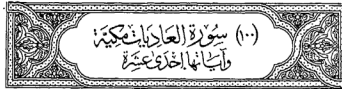 (١٠٠) سُورَةُ العَادِيَاتِ مَكِيَّة
وَآيَاتُهَا إِحْدَىٰ عَشَرَة